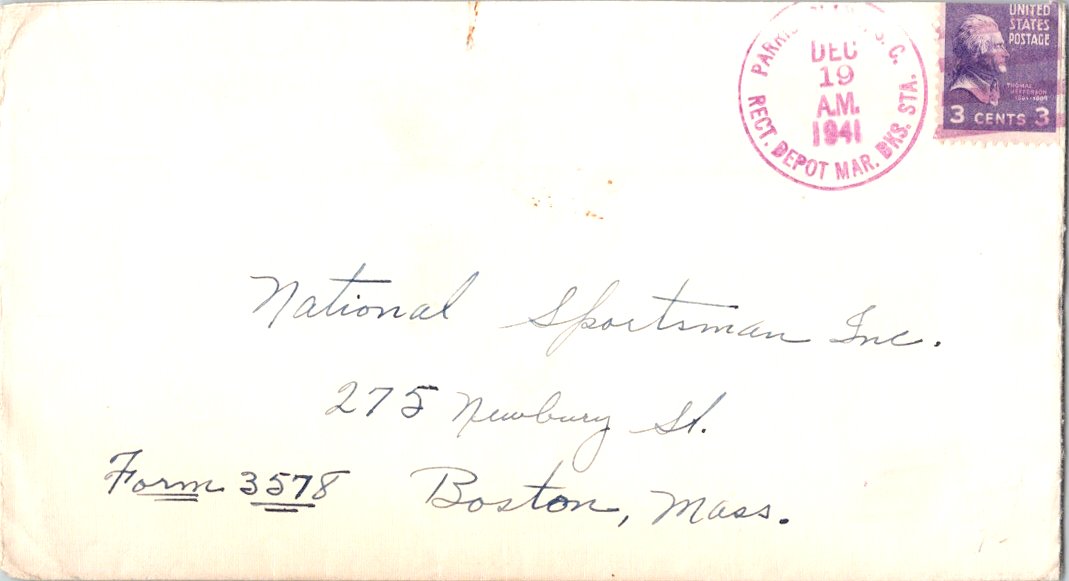 UNITED
STATES
POSTAGE
THOMAS
JEFFERSON
3 CENTS 3
S.C.
DEC
19
A.M.
1941
RECT. DEPOT MAR. BKS. STA.
National Sportsman Inc.
275 Newbury St.
Form 3578
Boston, Mass.